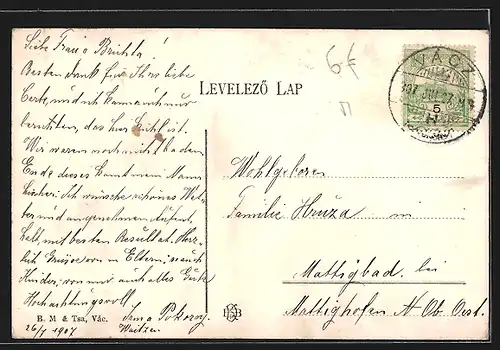 Liebe Frau Bruhla!
Besten Dank für Ihre liebe
Carte, und ich kann auch nur
berichten, das hier kühl ist.
Wir waren noch nicht baden
Ende dieses kommt mein Mann
Ich wünsche schönes Wet-
ter und angenehmen Aufent-
halt, mit besten Resultat. Herz-
lich Grüsse von m Eltern; so auch
Kinder, von mir auch alles Gute
Hochachtungsvoll
Irma Pokorny
26/7 1907 Waitzen
B. M & Tsa, Vác.
LEVELEZŐ LAP
6 f
VÁCZ
Wohlgeboren
Familie Hruza
in
Mattigbad bei
Mattighofen N Ob. Oest.